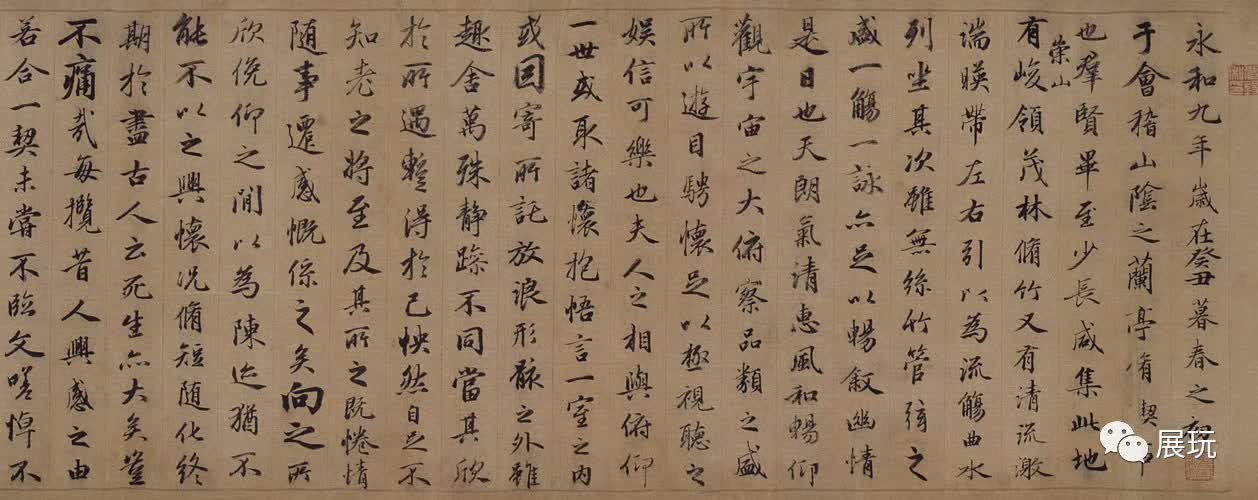 永和九年歲在癸丑暮春之初
于會稽山陰之蘭亭脩禊事
也羣賢畢至少長咸集此地
崇山
有峻領茂林脩竹又有清流激
湍暎帶左右引以為流觴曲水
列坐其次雖無絲竹管弦之
盛一觴一詠亦足以暢敘幽情
是日也天朗氣清惠風和暢仰
觀宇宙之大俯察品類之盛
所以遊目騁懷足以極視聽之
娛信可樂也夫人之相與俯仰
一世或取諸懷抱悟言一室之內
或因寄所託放浪形骸之外雖
趣舍萬殊静躁不同當其欣
於所遇蹔得於己怏然自足不
知老之將至及其所之既惓情
随事遷感慨係之矣向之所
欣俛仰之閒以為陳迹猶不
能不以之興懷況脩短随化終
期於盡古人云死生亦大矣豈
不痛哉每攬昔人興感之由
若合一契未嘗不臨文嗟悼不
展玩